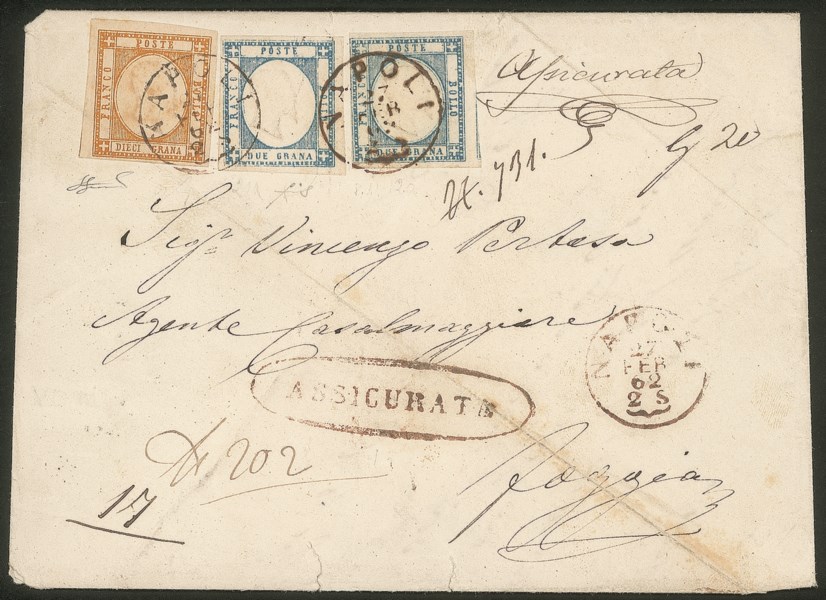 POSTE
FRANCO
BOLLO
DIECI GRANA
POSTE
FRANCO
DUE GRANA
POSTE
FRANCO
BOLLO
DUE GRANA
NAPOLI
NAPOLI
Assicurata
g 20
731.
Sigr Vincenzo Pertosa
Agente Casalmaggiore
NAPOLI
27
FEB
62
2 S
ASSICURATA
202
Foggia
17